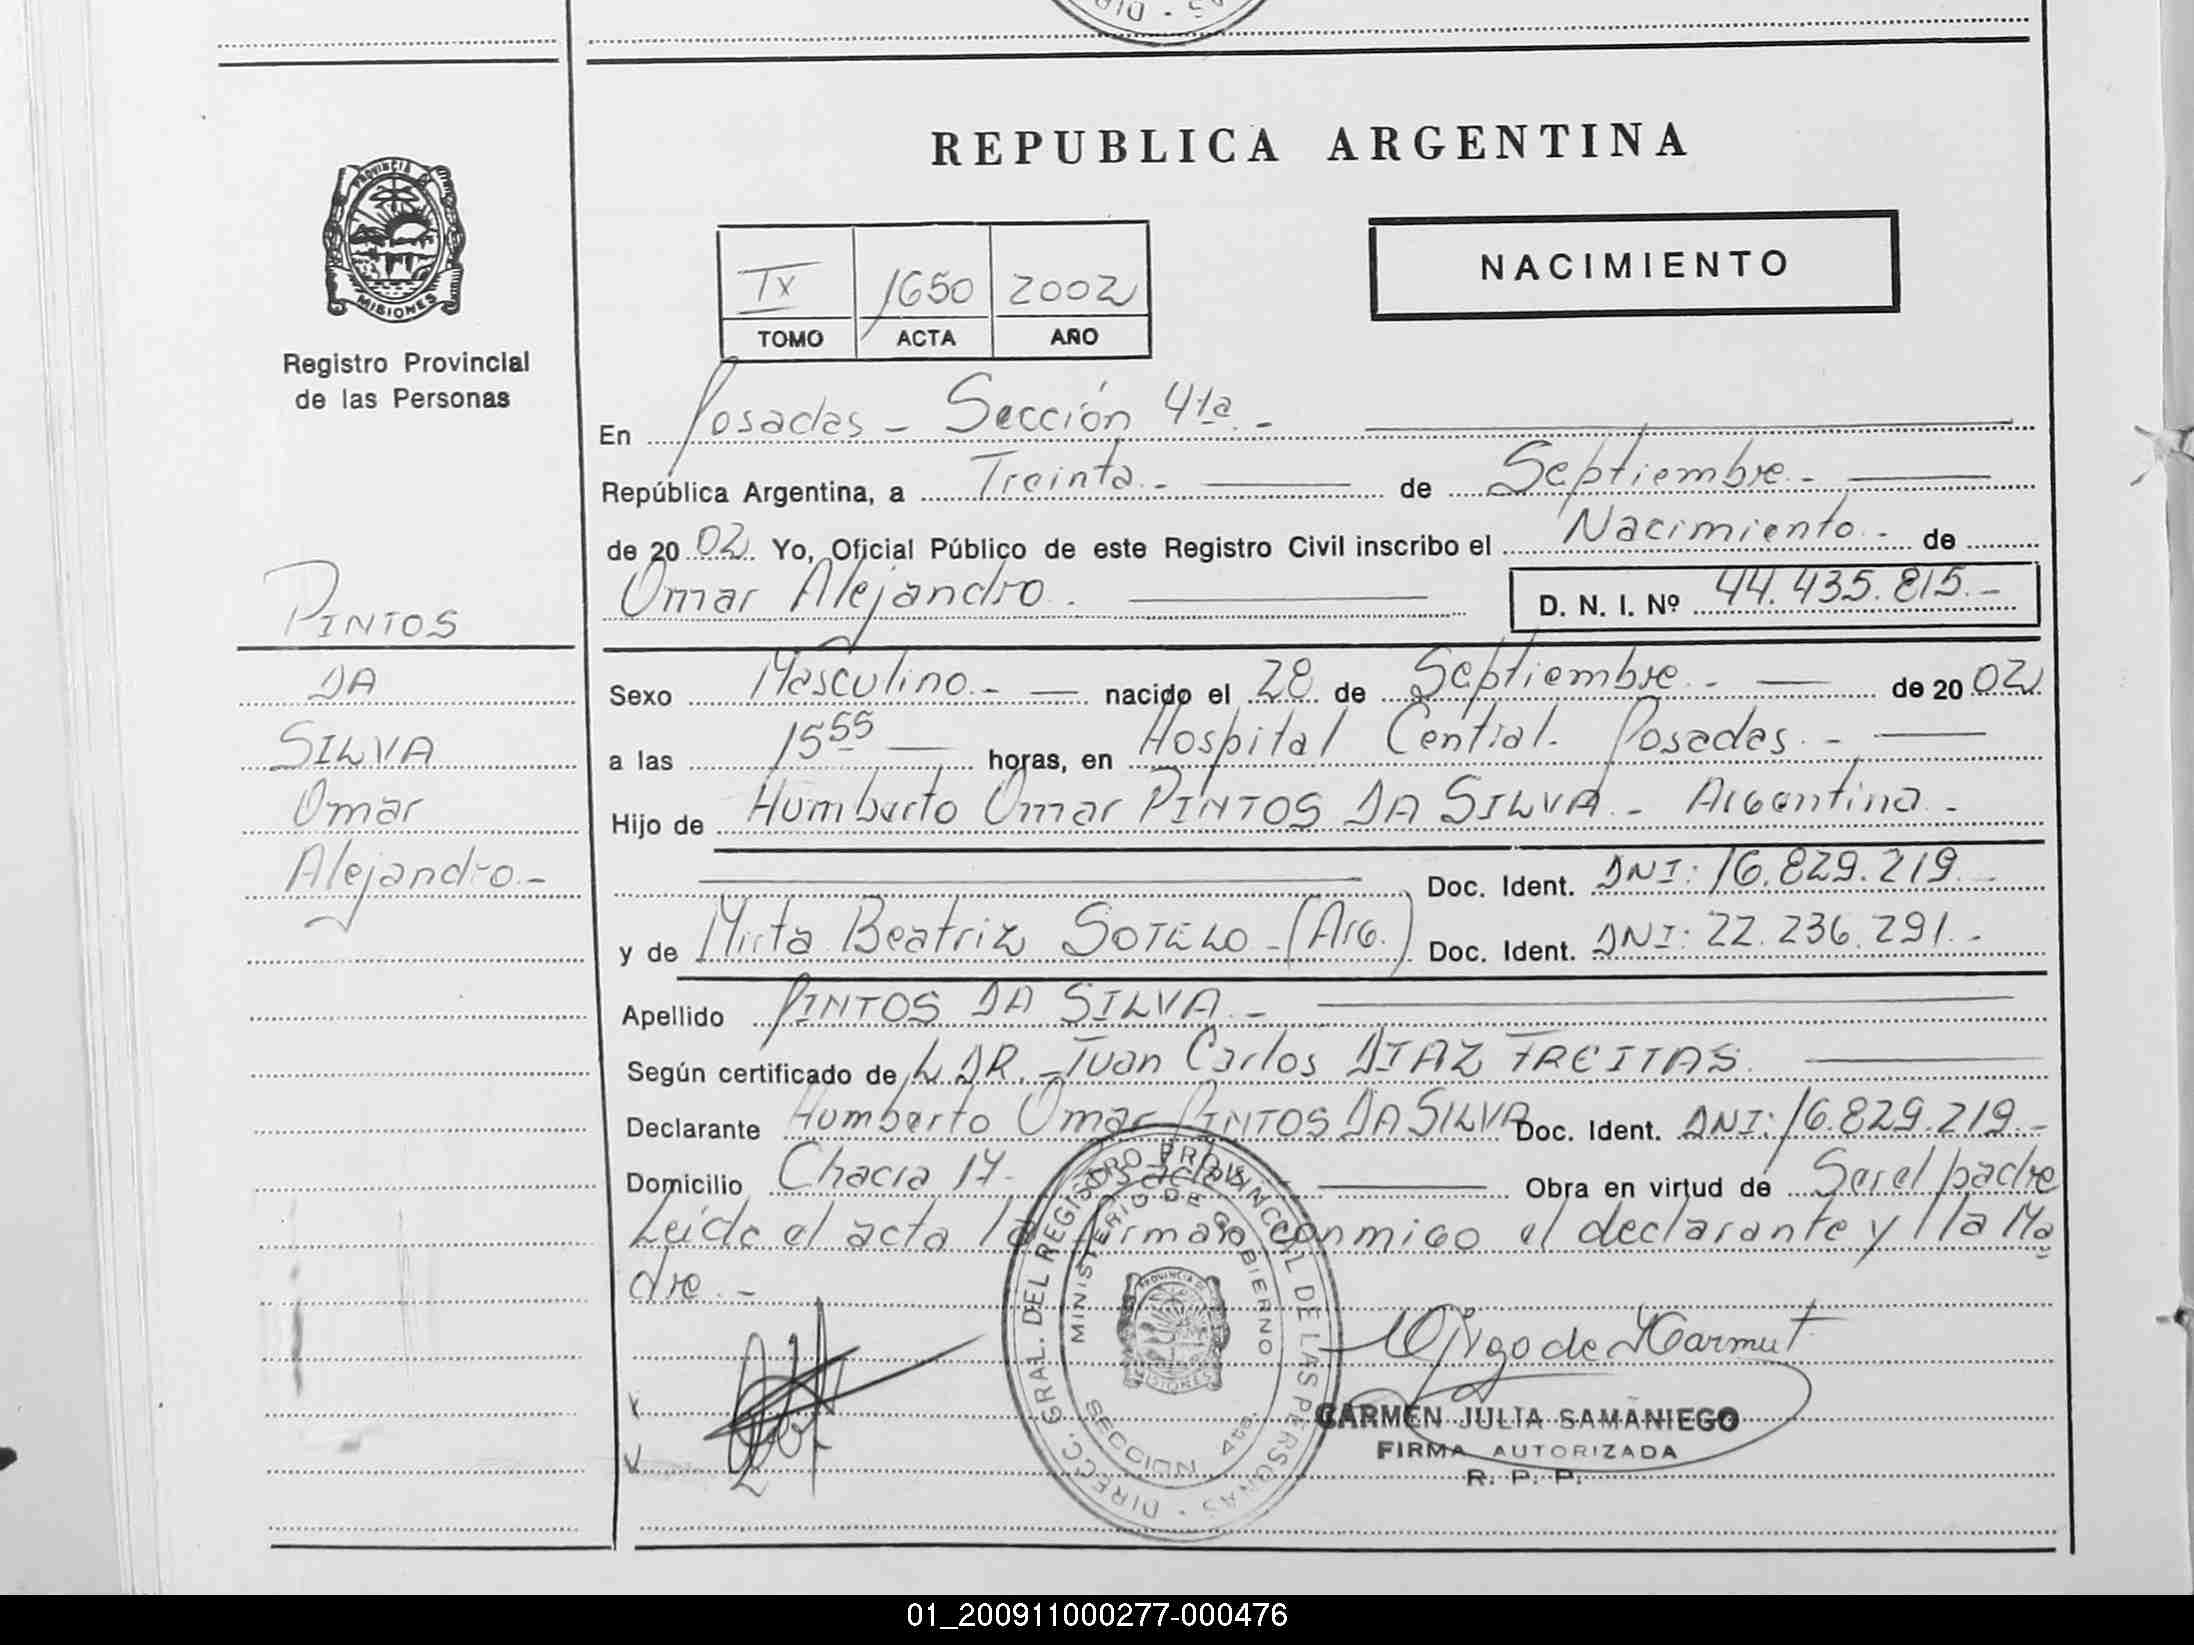 REPUBLICA ARGENTINA
PROVINCIA DE
MISIONES
Registro Provincial
de las Personas
IX 1650 2002
TOMO ACTA AÑO
NACIMIENTO
En Posadas - Sección 4ta. -
República Argentina, a Treinta. - de Septiembre. -
de 2002. Yo, Oficial Público de este Registro Civil inscribo el Nacimiento. - de
Omar Alejandro. D. N. I. Nº 44.435.815. -
PINTOS
DA
SILVA
Omar
Alejandro. -
Sexo Masculino. - nacido el 28 de Septiembre. - de 2002
a las 15 55 horas, en Hospital Central. Posadas. -
Hijo de Humberto Omar PINTOS DA SILVA. - Argentina. -
Doc. Ident. DNI: 16.829.219. -
y de Mirta Beatriz SOTELO - (Arg.) Doc. Ident. DNI: 22.236.291. -
Apellido PINTOS DA SILVA. -
Según certificado de L DR. - Juan Carlos DIAZ FREITAS.
Declarante Humberto Omar PINTOS DA SILVA Doc. Ident. DNI: 16.829.219. -
Domicilio Chacra 17. Posadas Obra en virtud de Ser el padre
Leída el acta la firman conmigo el declarante y la Ma
dre. -
DIRECC. GRAL. DEL REGISTRO PROVINCIAL DE LAS PERSONAS
MINISTERIO DE GOBIERNO
PROVINCIA DE
MISIONES
SECCION 4ta.
de Karmut
CARMEN JULIA SAMANIEGO
FIRMA AUTORIZADA
R. P. P.
01_200911000277-000476